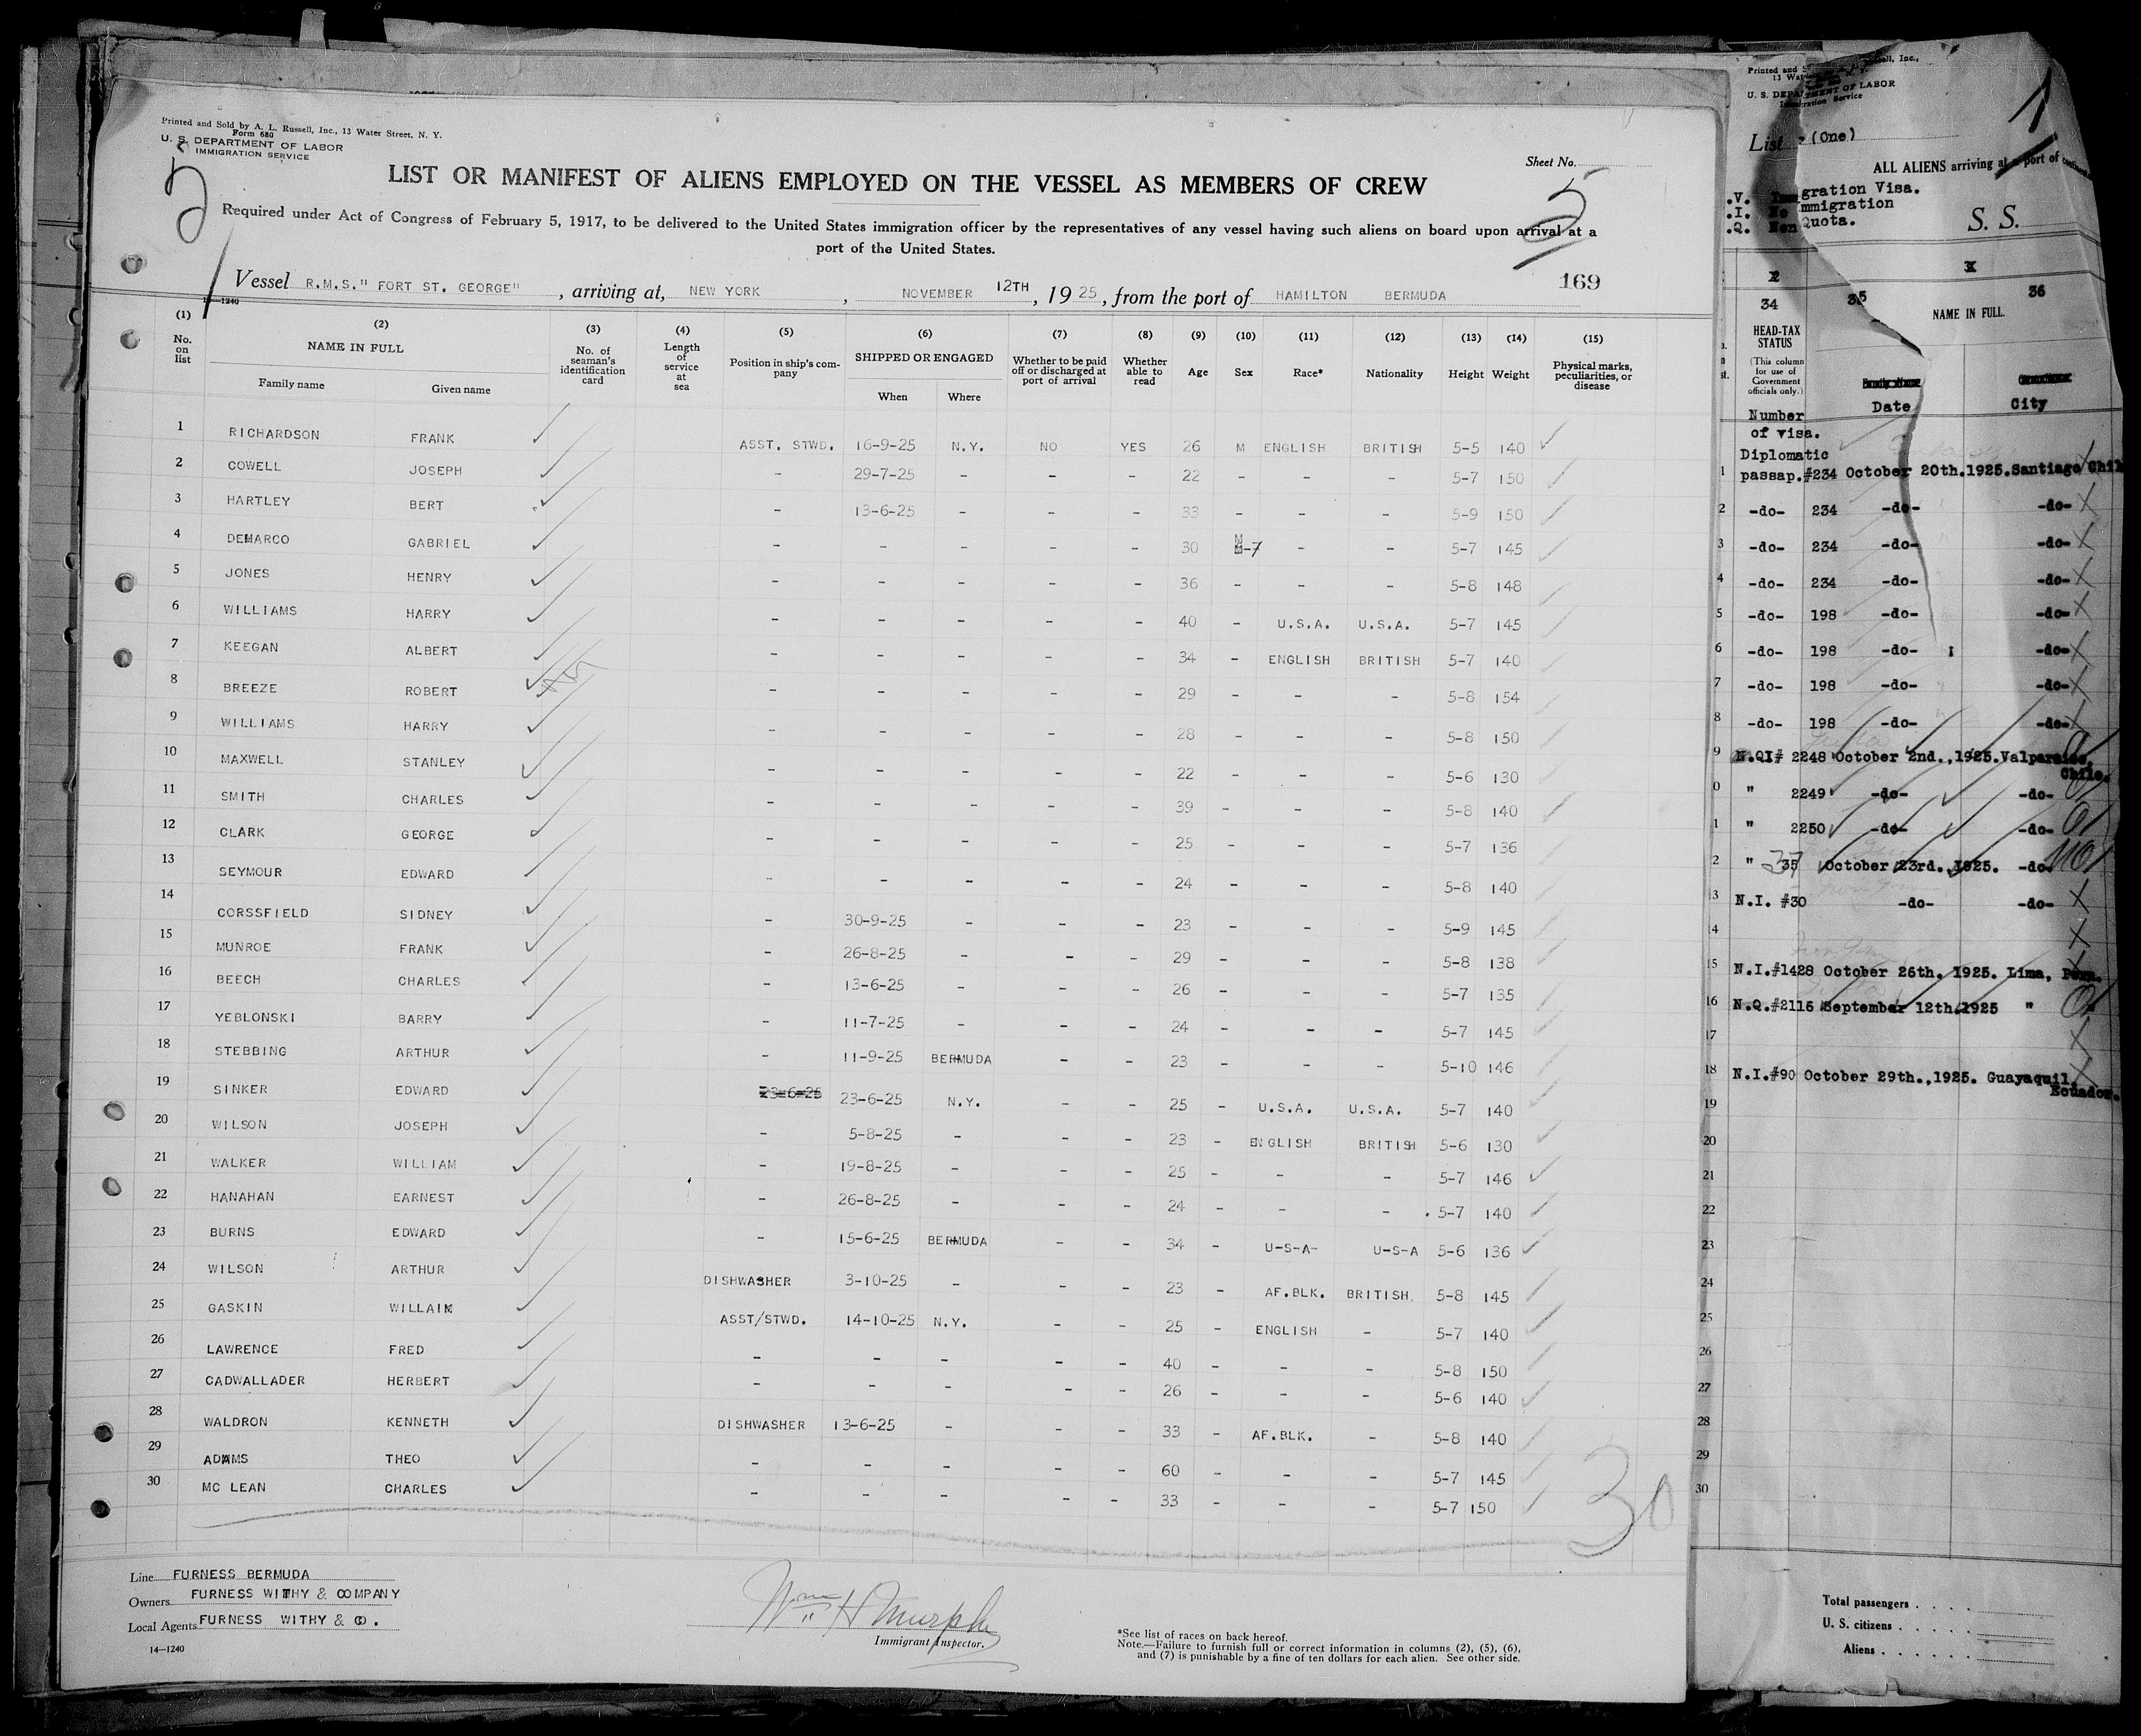 Printed and Sold by A. L. Russell, Inc., 13 Water Street, N. Y.
Form 680
U. S. DEPARTMENT OF LABOR
IMMIGRATION SERVICE
Sheet No.
5
LIST OR MANIFEST OF ALIENS EMPLOYED ON THE VESSEL AS MEMBERS OF CREW
Required under Act of Congress of February 5, 1917, to be delivered to the United States immigration officer by the representatives of any vessel having such aliens on board upon arrival at a
port of the United States.
169
Vessel R.M.S." FORT ST. GEORGE" , arriving at, NEW YORK , NOVEMBER 12TH , 19 25 , from the port of HAMILTON BERMUDA
14—1240
(1) (2) (3) (4) (5) (6) (7) (8) (9) (10) (11) (12) (13) (14) (15)
No. on list NAME IN FULL Family name Given name No. of seaman's identification card Length of service at sea Position in ship's company SHIPPED OR ENGAGED When Where Whether to be paid off or discharged at port of arrival Whether able to read Age Sex Race* Nationality Height Weight Physical marks, peculiarities, or disease
1 RICHARDSON FRANK ASST. STWD. 16-9-25 N.Y. NO YES 26 M ENGLISH BRITISH 5-5 140
2 COWELL JOSEPH - 29-7-25 - - - 22 - - - 5-7 150
3 HARTLEY BERT - 13-6-25 - - - 33 - - - 5-9 150
4 DEMARCO GABRIEL - - - - - 30 M-7 - - 5-7 145
5 JONES HENRY - - - - - 36 - - - 5-8 148
6 WILLIAMS HARRY - - - - - 40 - U.S.A. U.S.A. 5-7 145
7 KEEGAN ALBERT - - - - - 34 - ENGLISH BRITISH 5-7 140
8 BREEZE ROBERT - - - - - 29 - - - 5-8 154
9 WILLIAMS HARRY - - - - - 28 - - - 5-8 150
10 MAXWELL STANLEY - - - - - 22 - - - 5-6 130
11 SMITH CHARLES - - - - - 39 - - - 5-8 140
12 CLARK GEORGE - - - - - 25 - - - 5-7 136
13 SEYMOUR EDWARD - - - - - 24 - - - 5-8 140
14 CORSSFIELD SIDNEY - 30-9-25 - - - 23 - - - 5-9 145
15 MUNROE FRANK - 26-8-25 - - - 29 - - - 5-8 138
16 BEECH CHARLES - 13-6-25 - - - 26 - - - 5-7 135
17 YEBLONSKI BARRY - 11-7-25 - - - 24 - - - 5-7 145
18 STEBBING ARTHUR - 11-9-25 BERMUDA - - 23 - - - 5-10 146
19 SINKER EDWARD 23-6-25 23-6-25 N.Y. - - 25 - U.S.A. U.S.A. 5-7 140
20 WILSON JOSEPH - 5-8-25 - - - 23 - ENGLISH BRITISH 5-6 130
21 WALKER WILLIAM - 19-8-25 - - - 25 - - - 5-7 146
22 HANAHAN EARNEST - 26-8-25 - - - 24 - - - 5-7 140
23 BURNS EDWARD - 15-6-25 BERMUDA - - 34 - U-S-A- U-S-A 5-6 136
24 WILSON ARTHUR DISHWASHER 3-10-25 - - - 23 - AF.BLK. BRITISH. 5-8 145
25 GASKIN WILLAIM ASST/STWD. 14-10-25 N.Y. - - 25 - ENGLISH - 5-7 140
26 LAWRENCE FRED - - - - - 40 - - - 5-8 150
27 CADWALLADER HERBERT - - - - - 26 - - - 5-6 140
28 WALDRON KENNETH DISHWASHER 13-6-25 - - - 33 - AF.BLK. - 5-8 140
29 ADAMS THEO - - - - - 60 - - - 5-7 145
30 MC LEAN CHARLES - - - - - 33 - - - 5-7 150
30
Line FURNESS BERMUDA
Owners FURNESS WITHY & COMPANY
Local Agents FURNESS WITHY & CO.
14—1240
Wm H Murphy
Immigrant Inspector.
*See list of races on back hereof.
Note.—Failure to furnish full or correct information in columns (2), (5), (6),
and (7) is punishable by a fine of ten dollars for each alien. See other side.
Printed and
13 Wat
U. S. DEPARTMENT OF LABOR
Immigration Service
1
List (One)
ALL ALIENS arriving at a port of
.V. Immigration Visa.
.I. No Immigration
.Q. Non Quota.
S. S.
34 35 36
HEAD-TAX STATUS
(This column for use of Government officials only.)
NAME IN FULL.
Date City
Number
of visa.
Diplomatic
1 passap.#234 October 20th.1925.Santiago Chil
2 -do- 234 -do- -do-
3 -do- 234 -do- -do-
4 -do- 234 -do- -do-
5 -do- 198 -do- -do-
6 -do- 198 -do- -do-
7 -do- 198 -do- -do-
8 -do- 198 -do- -do-
9 N.QI# 2248 October 2nd.,1925.Valparaiso, Chile.
0 " 2249 -do- -do-
1 " 2250 -do- -do-
2 " 35 37 October 23rd.,1925. -do-
13 N.I. #30 -do- -do-
14
15 N.I.#1428 October 26th. 1925. Lima, Peru.
16 N.Q.#2116 September 12th.1925 "
17
18 N.I.#90 October 29th.,1925. Guayaquil, Ecuador.
19
20
21
22
23
24
25
26
27
28
29
30
Total passengers
U. S. citizens
Aliens